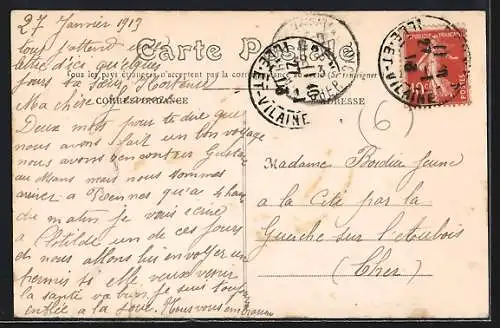 27 Janvier 1913
tous j'attend
quelques
jours ta sœur Hortense
Carte Postale
Tous les pays étrangers n'acceptent pas la correspondance au recto (Se renseigner
CORRESPONDANCE
ADRESSE
Ma chère
Deux mots pour te dire que
nous avons fait un bon
nous avons rencontré
au Mans mais nous sommes
arrivés à Rennes qu'a 4 heures
du matin je vais écrire
à Clotilde un de ces jours
nous allons lui envoyer un
permis si elle veux venir
la santé va bien je suis toujours
à la Nous vous embrassons
ILLE-ET-VILAINE
ILLE-ET-VILAINE
CHER
REPUBLIQUE FRANÇAISE
10c
POSTES
(6)
Madame Bordier Jeune
à la Cité par la
Guerche sur l'Aubois
(Cher)